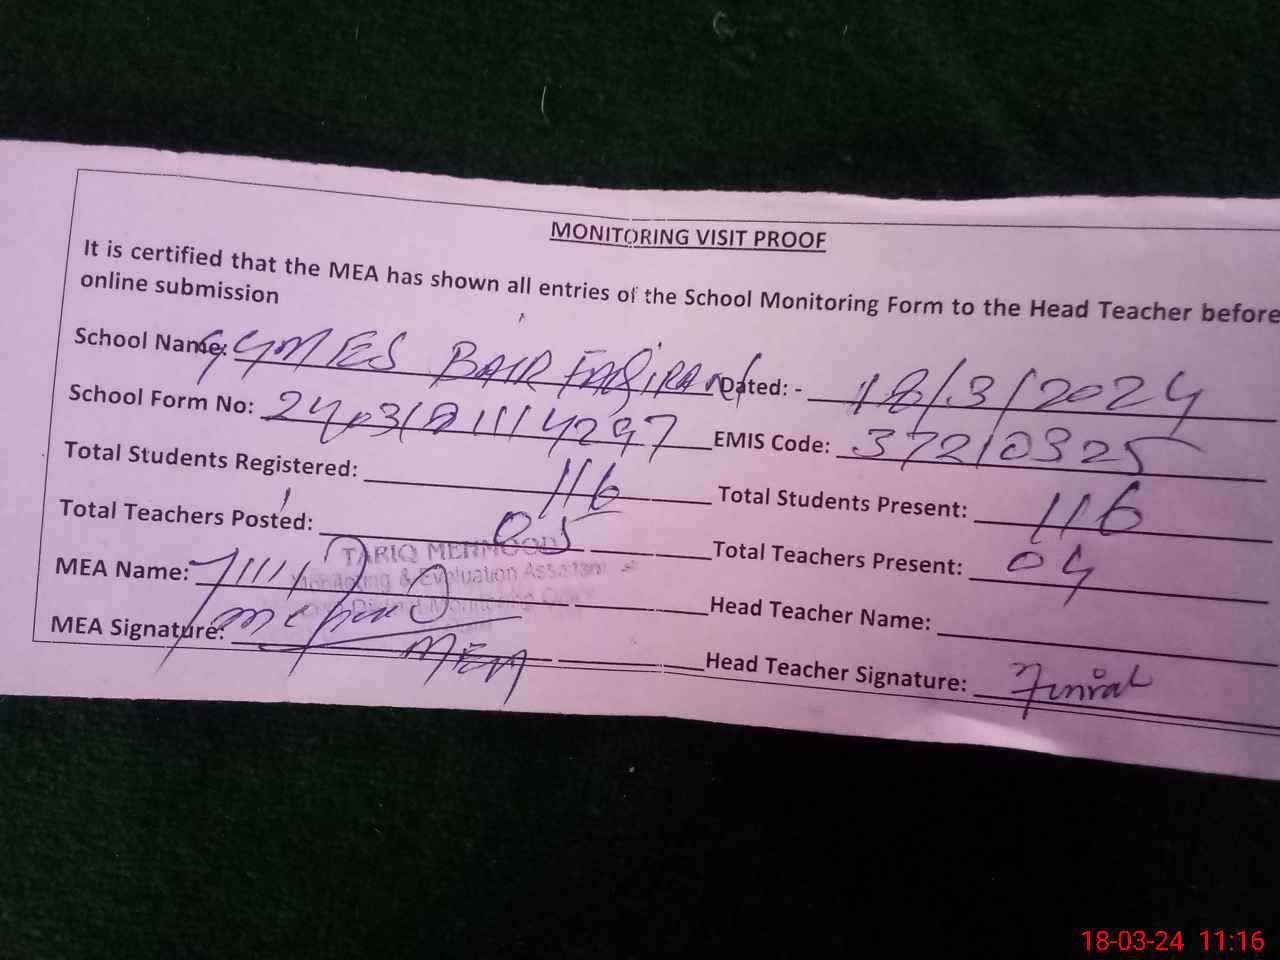 MONITORING VISIT PROOF
It is certified that the MEA has shown all entries of the School Monitoring Form to the Head Teacher before
online submission
School Name: GGMES BAIR FAQIRAN Dated: - 18/3/2024
School Form No: EMIS Code: 37210325
Total Students Registered: 116 Total Students Present: 116
Total Teachers Posted: 05 Total Teachers Present: 04
TARIQ MEHMOOD
Monitoring & Evaluation Assistant
MEA Name: Head Teacher Name:
MEA Signature: MEA Head Teacher Signature:
18-03-24 11:16